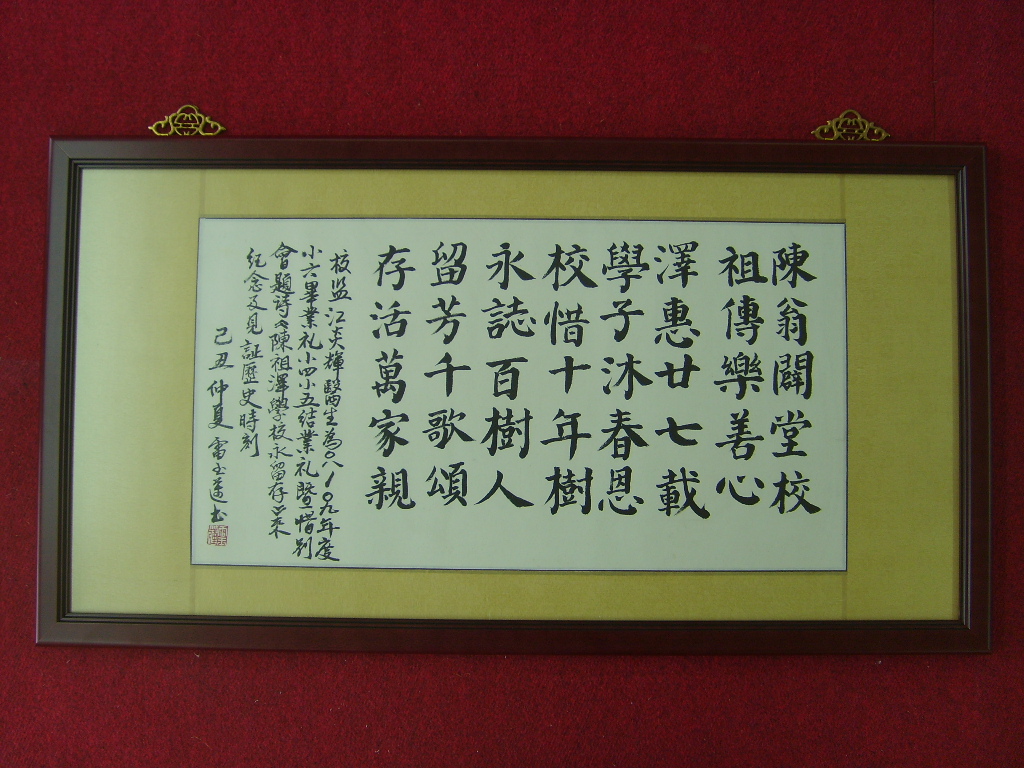 陳翁闢堂校
祖傳樂善心
澤惠廿七載
學子沐春恩
校惜十年樹
永誌百樹人
留芳千歌頌
存活萬家親
校监 江炎輝醫生為〇八/〇九年度
小六畢業礼小四小五結業礼暨惜别
會題詩以陳祖澤學校永留存
紀念及見証歷史時刻
己丑仲夏雷玉蓮书